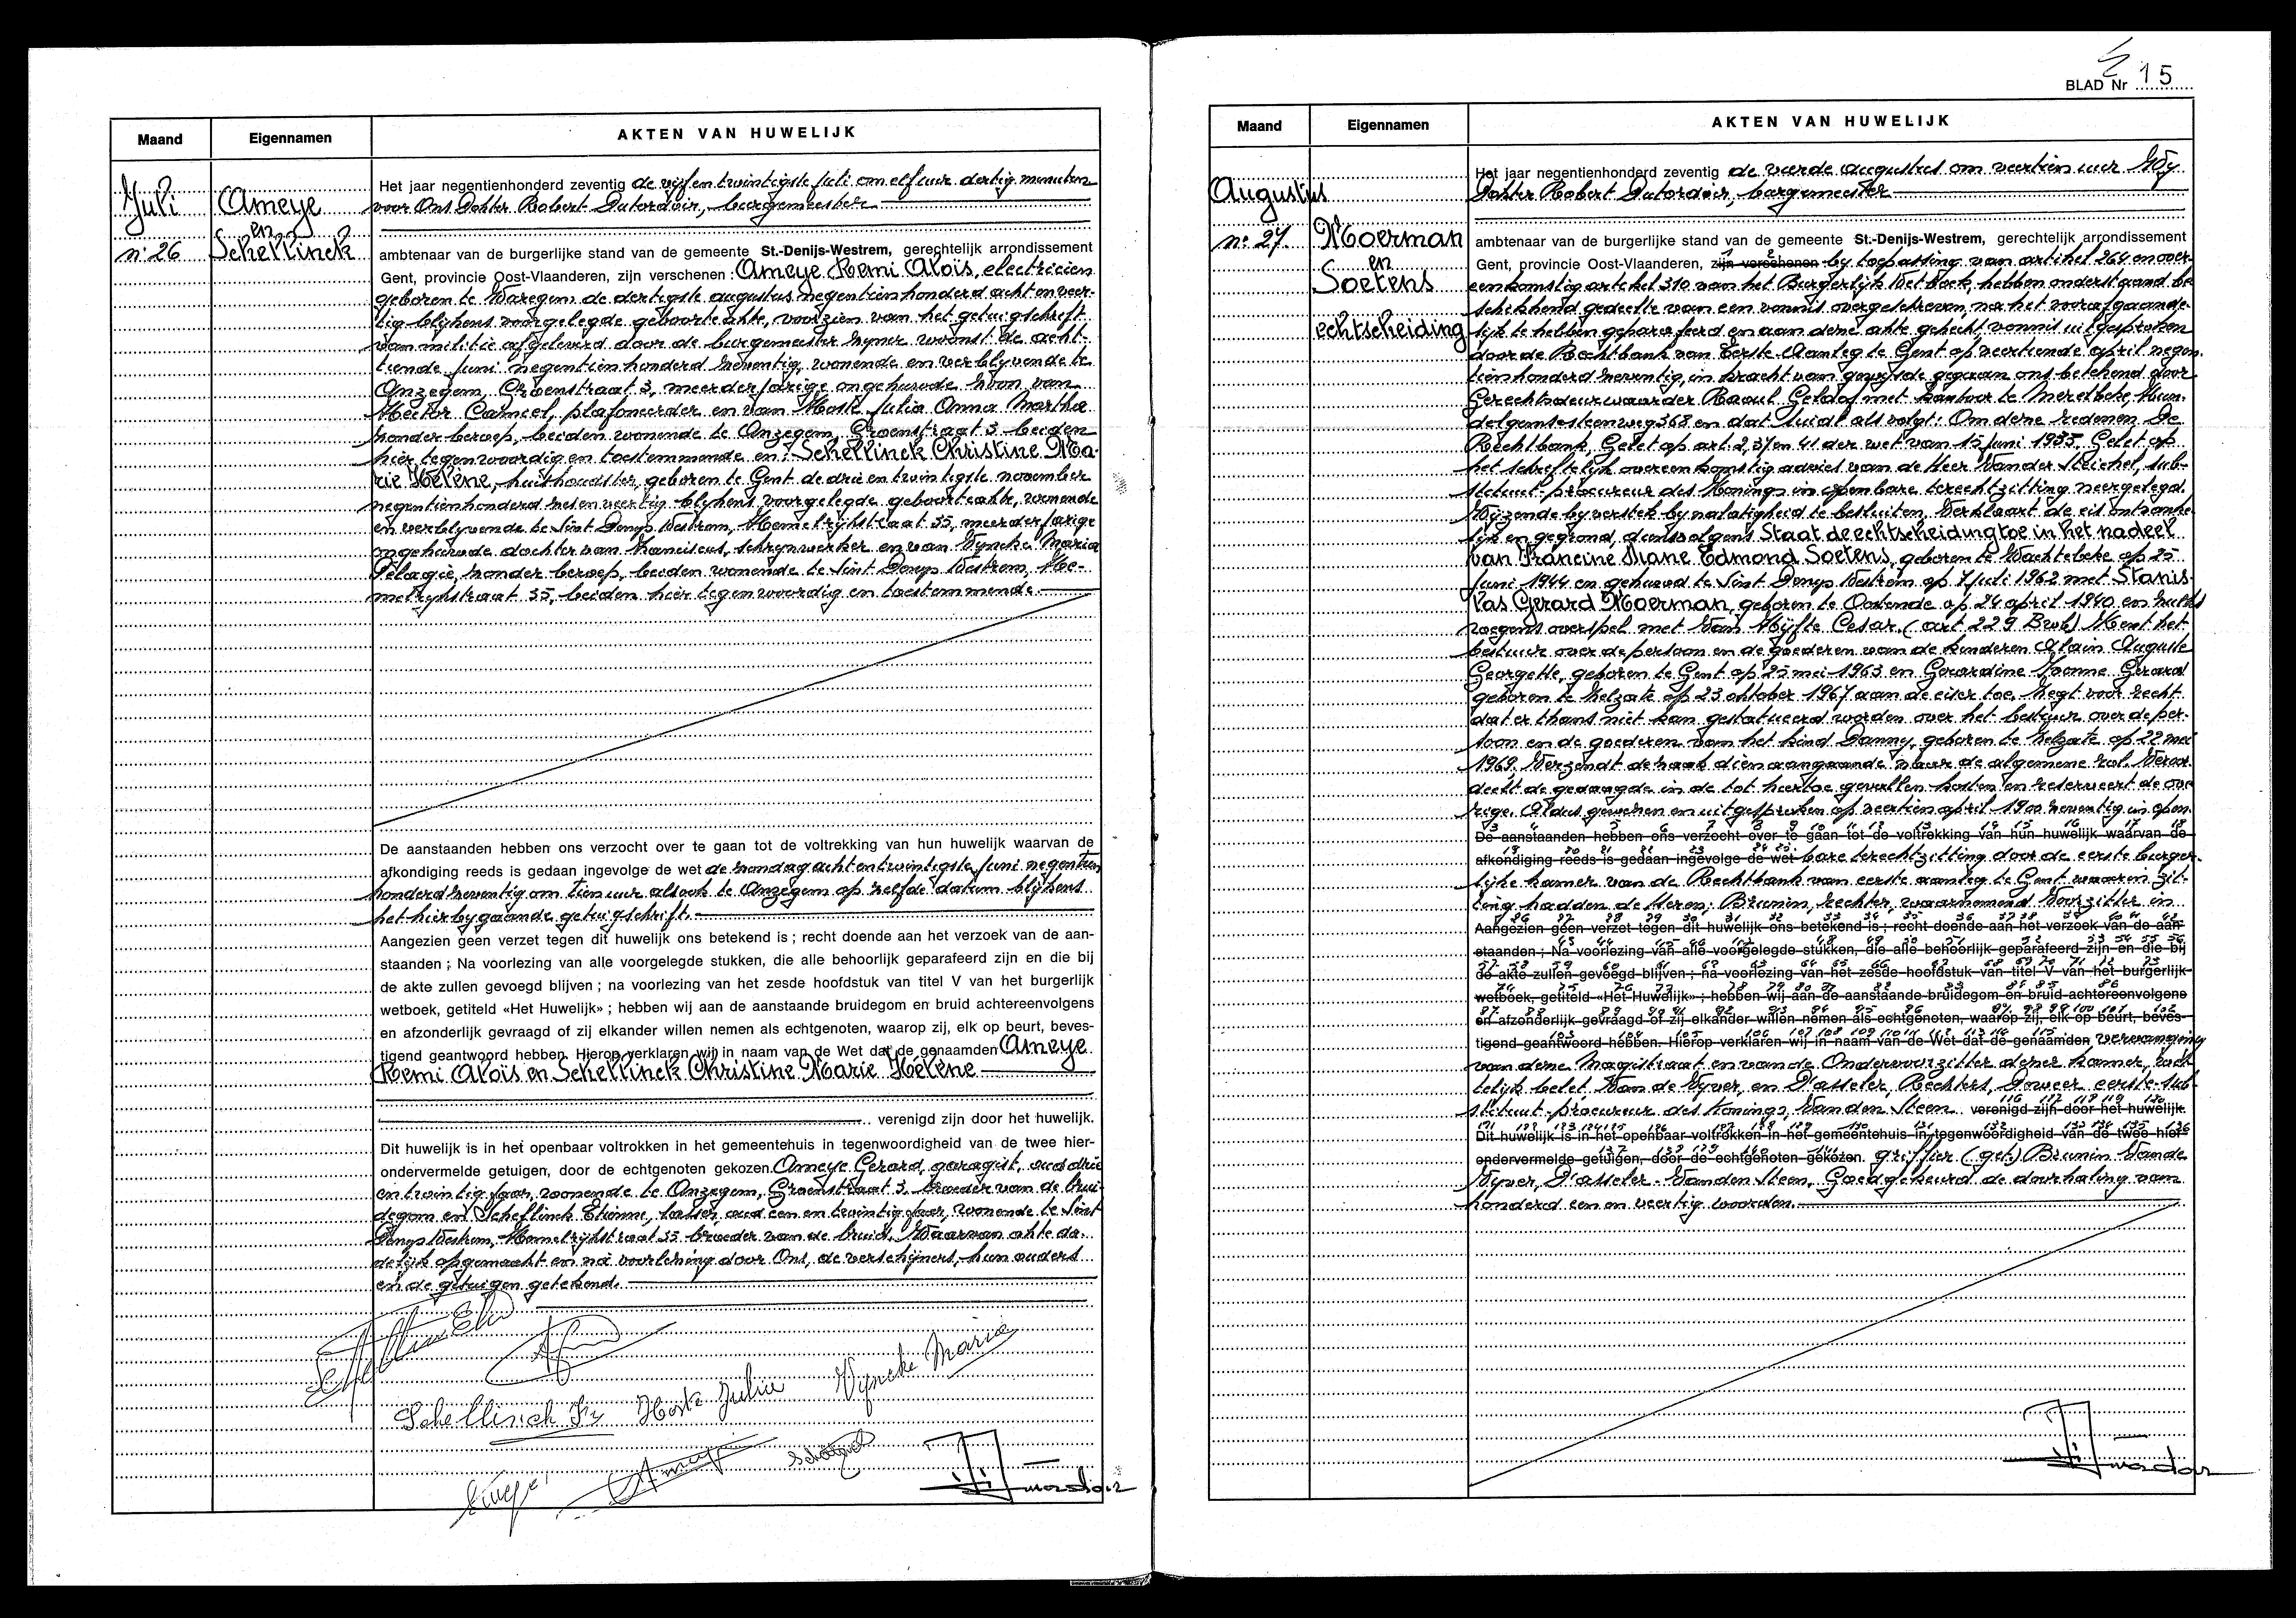 Maand
Eigennamen
AKTEN VAN HUWELIJK
Juli
n: 26
Ameye
en
Schellinck
Het jaar negentienhonderd zeventig de vyfentwintigste juli om elf uur dertig minuten
voor Ons Dokter Robert Dutordoir, burgemeester
ambtenaar van de burgerlijke stand van de gemeente St.-Denijs-Westrem, gerechtelijk arrondissement
Gent, provincie Oost-Vlaanderen, zijn verschenen : Ameye Remi Aloïs, electricien
geboren te Waregem de dertigste augustus negentienhonderd acht en veer-
tig blykens voorgelegde geboorteakte, voorzien van het getuigschrift
van militie afgeleverd door de burgemeester zyner woonst de acht-
tiende juni negentienhonderd zeventig, wonende en verblyvende te
Anzegem, Groenstraat 3, meerderjarige ongehuwde zoon van
Hector Camiel, plafoneerder en van Hoste Julia Anna Martha
zonder beroep, beiden wonende te Anzegem, Groenstraat 3 beiden
hier tegenwoordig en toestemmende en: Schellinck Christine Ma-
rie Hélène, huishoudster, geboren te Gent de drie en twintigste november
negentienhonderd zes en veertig blykens voorgelegde geboorteakte, wonende
en verblyvende te Sint Denys Westrem, Hemelrijkstraat 35, meerderjarige
ongehuwde dochter van Franciscus, schrynwerker en van Vyncke Maria
Pelagie, zonder beroep, beiden wonende te Sint Denys Westrem, He-
melrykstraat 35, beiden hier tegenwoordig en toestemmende
De aanstaanden hebben ons verzocht over te gaan tot de voltrekking van hun huwelijk waarvan de
afkondiging reeds is gedaan ingevolge de wet de zondag acht en twintigste juni negentien
honderd zeventig om tien uur alsook te Anzegem op zelfde datum blykens
het hierbygaande getuigschrift.
Aangezien geen verzet tegen dit huwelijk ons betekend is ; recht doende aan het verzoek van de aan-
staanden ; Na voorlezing van alle voorgelegde stukken, die alle behoorlijk geparafeerd zijn en die bij
de akte zullen gevoegd blijven ; na voorlezing van het zesde hoofdstuk van titel V van het burgerlijk
wetboek, getiteld «Het Huwelijk» ; hebben wij aan de aanstaande bruidegom en bruid achtereenvolgens
en afzonderlijk gevraagd of zij elkander willen nemen als echtgenoten, waarop zij, elk op beurt, beves-
tigend geantwoord hebben. Hierop verklaren wij in naam van de Wet dat de genaamden Ameye
Remi Aloïs en Schellinck Christine Marie Hélène
verenigd zijn door het huwelijk.
Dit huwelijk is in het openbaar voltrokken in het gemeentehuis in tegenwoordigheid van de twee hier-
ondervermelde getuigen, door de echtgenoten gekozen. Ameye Gerard, garagist, oud drie
en twintig jaar, wonende te Anzegem, Groenstraat 3, broeder van de brui
degom en Schellinck Etienne, lasser, oud een en twintig jaar, wonende te Sint
Denys Westrem, Hemelrijkstraat 35 broeder van de bruid. Waarvan akte da-
delijk opgemaakt en na voorlezing door Ons, de verschijners, hun ouders
en de getuigen getekend.
Schellinck Fr Hoste Julia Vyncke Maria
Ameye
BLAD Nr 15
Maand
Eigennamen
AKTEN VAN HUWELIJK
Augustus
n: 27.
Moerman
en
Soetens
echtscheiding
Het jaar negentienhonderd zeventig de vierde augustus om veertien uur Wy
Dokter Robert Dutordoir, burgemeester
ambtenaar van de burgerlijke stand van de gemeente St.-Denijs-Westrem, gerechtelijk arrondissement
Gent, provincie Oost-Vlaanderen, zijn verschenen by toepassing van artikel 264 en over-
eenkomstig artikel 310 van het Burgerlijk Wetboek, hebben onderstaand be
schikkend gedeelte van een vonnis overgeschreven, na het voorafgaande-
lijk te hebben geparafeerd en aan deze akte gehecht, vonnis uitgesproken
door de Rechtbank van Eerste Aanleg te Gent op veertiende april negen-
tienhonderd zeventig, in kracht van gewijsde gegaan ons betekend door
Gerechtsdeurwaarder Raoul Geldof met kantoor te Merelbeke, Hun-
delgemsesteenweg 368 en dat luidt als volgt: Om deze redenen De
Rechtbank, Gelet op art. 2, 37 en 41 der wet van 15 juni 1935, Gelet op
het schriftelijk overeenkomstig advies van de Heer Vander Steichel, sub-
stituut-procureur des Konings in openbare terechtzitting neergelegd.
Wijzende by verstek by nalatigheid te besluiten, Verklaart de eis ontvanke
lijk en gegrond, dienvolgens Staat de echtscheiding toe in het nadeel
van Francine Diane Edmond Soetens, geboren te Wachtebeke op 25
juni 1944 en gehuwd te Sint Denys Westrem op 7 juli 1962 met Stanis-
las Gerard Moerman, geboren te Oostende op 24 april 1940 en zulks
wegens overspel met Van Hyfte Cesar. (art 229 Bwb) Kent het
bestuur over de persoon en de goederen van de kinderen Alain Auguste
Georgette, geboren te Gent op 25 mei 1963 en Gerardine Yvonne Gerard
geboren te Zelzate op 23 oktober 1967 aan de eiser toe. Zegt voor recht
dat er thans niet kan gestatueerd worden over het bestuur over de per-
soon en de goederen van het kind Danny, geboren te Zelzate op 22 mei
1969. Verzendt de zaak dienaangaande naar de algemene rol. Veroor
deelt de gedaagde in de tot hiertoe gevallen kosten en reserveert de ove
rige. Aldus gewezen en uitgesproken op veertien april 1900 zeventig in open
De aanstaanden hebben ons verzocht over te gaan tot de voltrekking van hun huwelijk waarvan de
afkondiging reeds is gedaan ingevolge de wet bare terechtzitting door de eerste burger-
lijke kamer van de Rechtbank van eerste aanleg te Gent waaren zit-
ting hadden de Heren; Brunin, rechter, waarnemend Voorzitter in
Aangezien geen verzet tegen dit huwelijk ons betekend is ; recht doende aan het verzoek van de aan-
staanden ; Na voorlezing van alle voorgelegde stukken, die alle behoorlijk geparafeerd zijn en die bij
de akte zullen gevoegd blijven ; na voorlezing van het zesde hoofdstuk van titel V van het burgerlijk
wetboek, getiteld «Het Huwelijk» ; hebben wij aan de aanstaande bruidegom en bruid achtereenvolgens
en afzonderlijk gevraagd of zij elkander willen nemen als echtgenoten, waarop zij, elk op beurt, beves-
tigend geantwoord hebben. Hierop verklaren wij in naam van de Wet dat de genaamden vervanging
van deze Magistraat en van de Ondervoorzitter dezer kamer, wet
telijk belet Van de Vyver, en D'asseler, Rechters, Doweer eerste-sub-
stituut-procureur des Konings, Van den Steen verenigd zijn door het huwelijk.
Dit huwelijk is in het openbaar voltrokken in het gemeentehuis in tegenwoordigheid van de twee hier-
ondervermelde getuigen, door de echtgenoten gekozen. griffier (get.) Brunin Vande
Vyver, D'asseler. Vanden Steen, Goedgekeurd de doorhaling van
honderd een en veertig woorden.